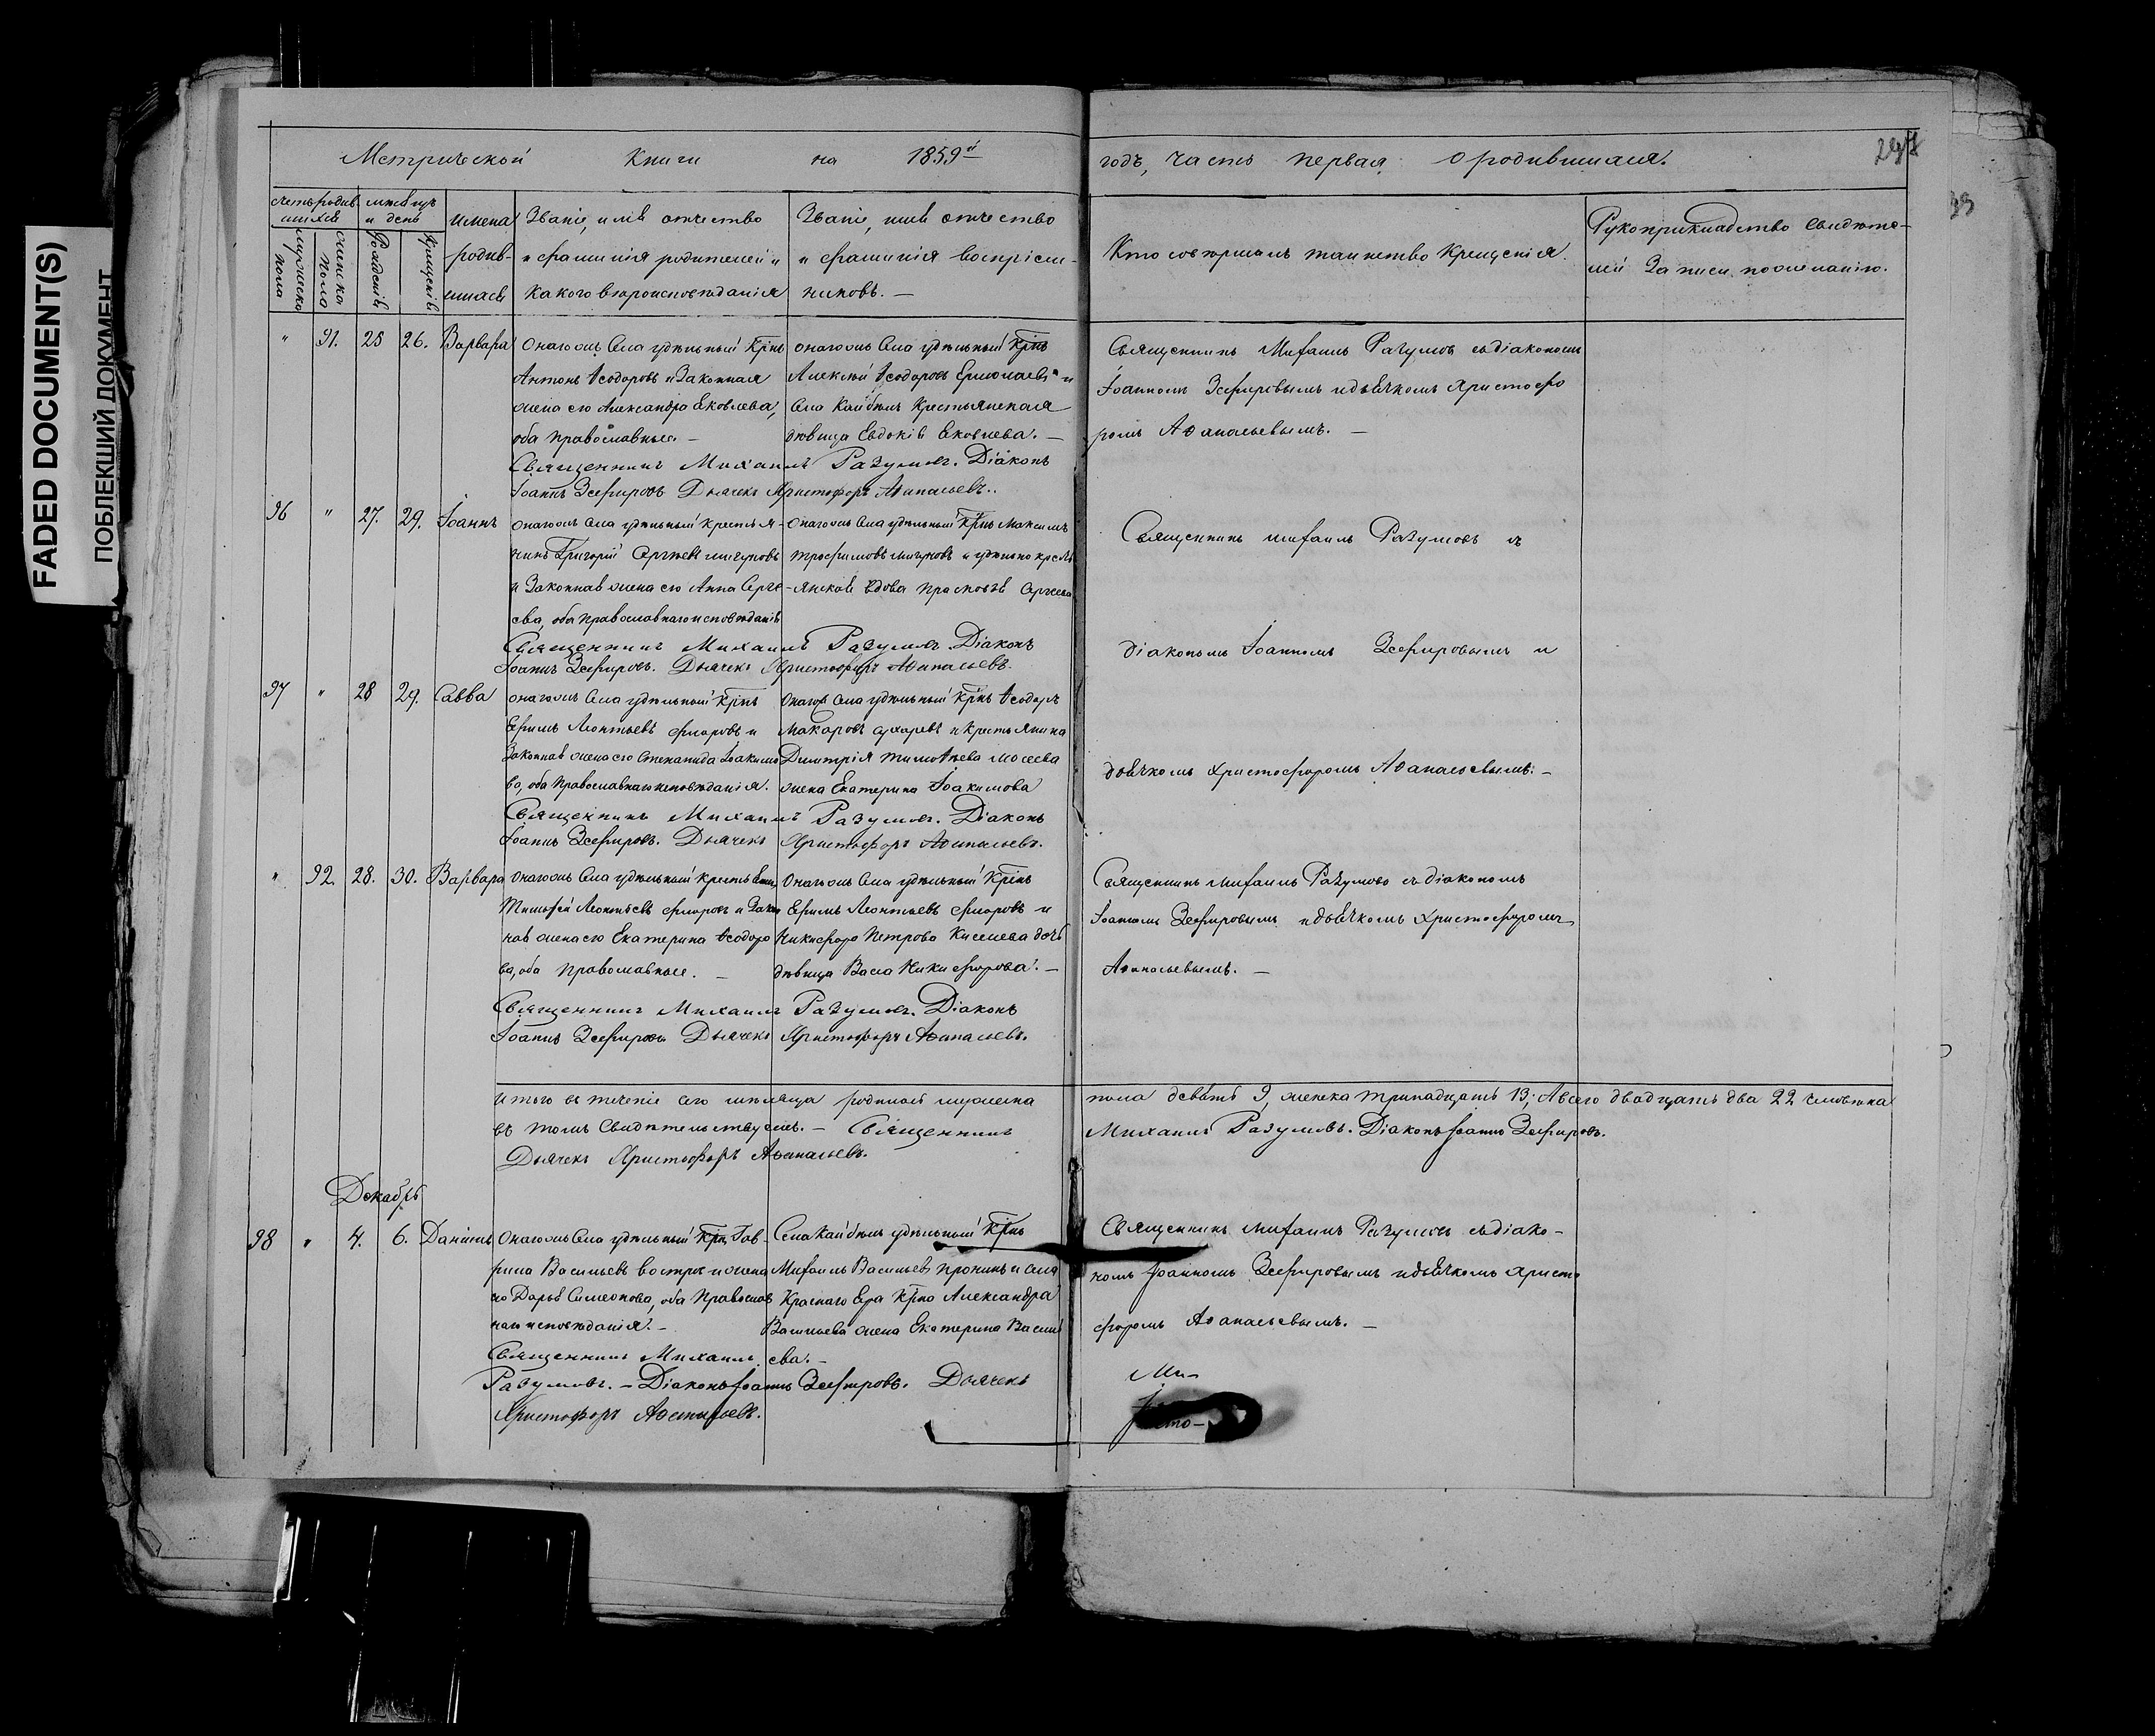 FADED DOCUMENT(S)
ПОБЛЕКШИЙ ДОКУМЕНТ
Метрической книги на 1859й годъ, часть первая, о родившихся.
счетъ родившихся
мужеска пола
женска пола
месяцъ и день
Рождения
Крещенія
имена родив-
шихся
Званіе, имя отчество
и фамилія родителей и
какого вероисповѣданія
Званіе, имя отчество
и фамилія воспріем-
никовъ. —
Кто совершалъ таинство Крещенія.
Рукоприкладство свидѣте-
лей записи по желанію.
" 91. 25 26. Варвара
Онагожъ села удѣльный Крнъ
Антонъ Ѳеодоровъ и Законная
жена его Александра Яковлева,
оба православные. —
онагожъ села удѣльный Крнъ
Алексѣй Ѳеодоровъ Ермолаевъ и
села Кайбелъ Крестьянская
дѣвица Евдокія Яковлева. —
Священникъ Михаилъ Разумовъ съ діакономъ
Іоанномъ Зефировымъ и дьячкомъ Христофо
ромъ Аѳанасьевымъ. —
Священникъ Михаилъ Разумовъ. Діаконъ
Іоаннъ Зефировъ Дьячекъ Христофоръ Аѳанасьевъ.
96 " 27. 29. Іоаннъ
онагожъ села удѣльный крестья-
нинъ Григорій Сергѣевъ мигуновъ
и Законная жена его Анна Серге-
ева, оба православнаго исповѣданія
онагожъ села удѣльный Крнъ Максимъ
Трофимовъ мигуновъ и удѣльно крестъ
-янская вдова Прасковья Сергеева
Священникъ михаилъ Разумовъ съ
діакономъ Іоанномъ Зефировымъ и
дьячкомъ Христофоромъ Аѳанасьевымъ. —
Священникъ Михаилъ Разумовъ. Діаконъ
Іоаннъ Зефировъ. Дьячекъ Христофоръ Аѳанасьевъ.
97 " 28 29. Савва
онагожъ села удѣльный Крнъ
Ефимъ Леонтьевъ фроровъ и
Законная жена его Степанида Іоакимо
ва, оба Православнаго исповѣданія.
Онагожъ села удѣльный Крнъ Ѳеодоръ
Макаровъ сухаревъ и Крестьянина
Димитрія тимоѳеева мосеева
жена Екатерина Іоакимова
Священникъ Михаилъ Разумовъ. Діаконъ
Іоаннъ Зефировъ. Дьячекъ Христофоръ Аѳанасьевъ.
" 92. 28. 30. Варвара
Онагожъ села удѣльный крестьянин
Тимофей Леонтьевъ фроровъ и Закон
ная жена его Екатерина Ѳеодоро
ва, оба православные. —
Онагожъ села удѣльный Крнъ
Ефимъ Леонтьевъ фроровъ и
Никифора Петрова Киселева дочь
дѣвица Васса Никифорова. —
Священникъ михаилъ Разумовъ съ діакономъ
Іоанномъ Зефировымъ и дьячкомъ Христофоромъ
Аѳанасьевымъ. —
Священникъ Михаилъ Разумовъ. Діаконъ
Іоаннъ Зефировъ Дьячекъ Христофоръ Аѳанасьевъ.
Итого въ теченіе сего месяца родилось мужеска пола девять 9, женска тринадцать 13; А всего двадцать два 22 человека
въ томъ свидѣтельствуемъ. — Священникъ Михаилъ Разумовъ. Діаконъ Іоаннъ Зефировъ.
Дьячекъ Христофоръ Аѳанасьевъ.
Декабрь
98 " 4. 6. Даніилъ
Онагожъ села удѣльный Крнъ Гав-
рила Васильевъ вострос и жена
его Дарья Симеонова, оба Православ
наго исповѣданія. —
Села Кайбелъ удѣльный Крнъ
Михаилъ Васильевъ пронинъ и села
Краснаго Яра Крна Александра
Васильева жена Екатерина Василь
ева. —
Священникъ Михаилъ Разумовъ съ діако-
номъ Іоанномъ Зефировымъ и дьячкомъ Христо
форомъ Аѳанасьевымъ. —
Священникъ Михаилъ
Разумовъ. — Діаконъ Іоаннъ Зефировъ. Дьячекъ
Христофоръ Аѳанасьевъ.
Ми-
сто-